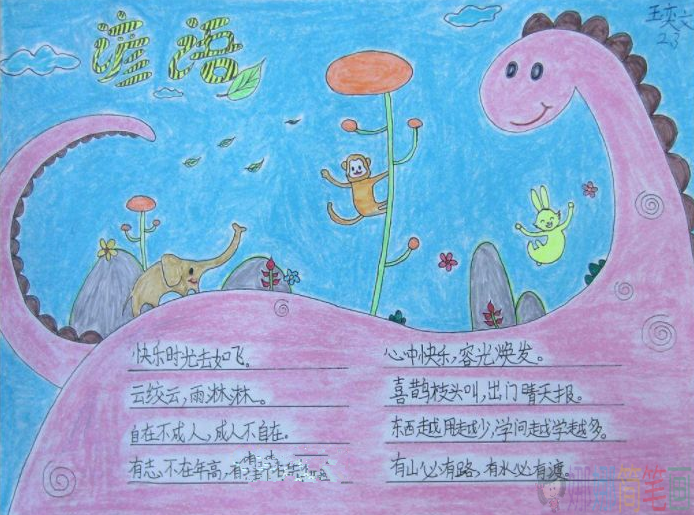 谚语
王奕
2.3
快乐时光去如飞。
云绞云，雨淋淋。
自在不成人，成人不自在。
有志，不在年高，有
心中快乐，容光焕发。
喜鹊枝头叫，出门晴天报。
东西越用越少，学问越学越多。
有山必有路，有水必有渡。
简笔画